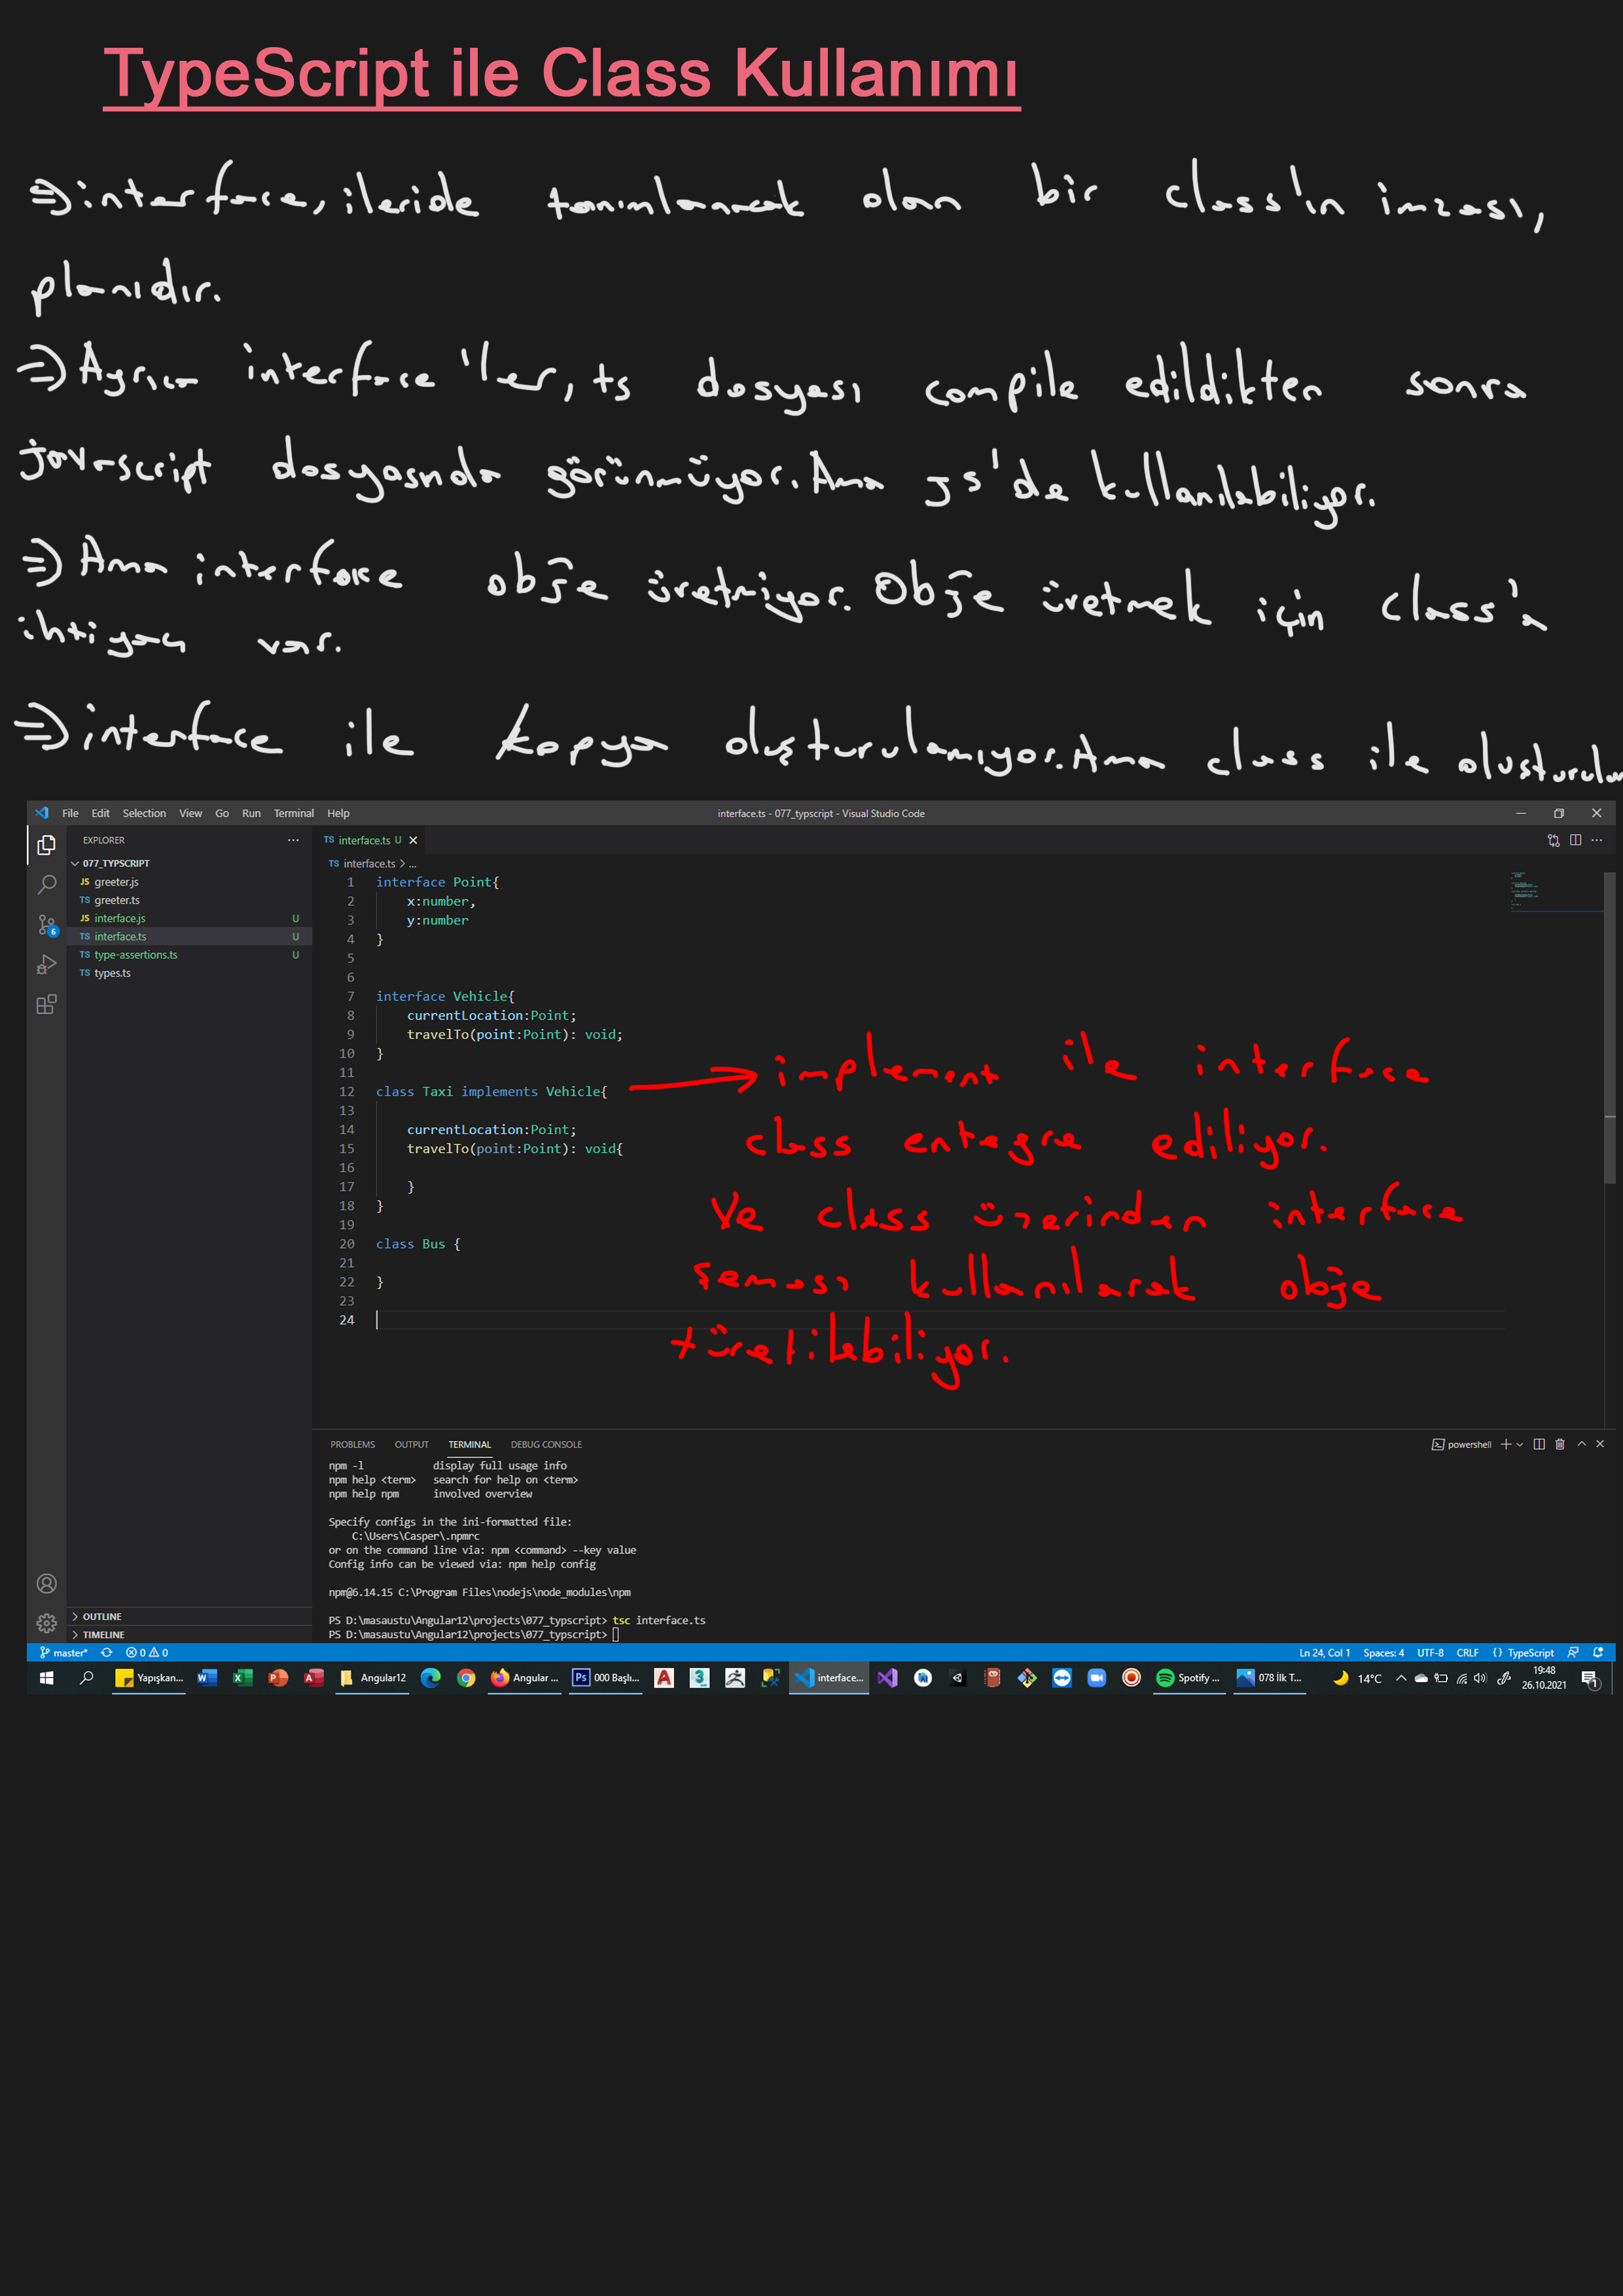 TypeScript ile Class Kullanımı
⇒interface, ileride tanımlanacak olan bir class'ın imzası,
planıdır.
⇒Ayrıca interface'ler, ts dosyası compile edildikten sonra
javascript dosyasında görünmüyor. Ama JS'de kullanılabiliyor.
⇒Ama interface obje üretmiyor. Obje üretmek için class'a
ihtiyaç var.
⇒interface ile kopya oluşturulamıyor. Ama class ile
File Edit Selection View Go Run Terminal Help interface.ts - 077_typscript - Visual Studio Code
EXPLORER ... TS interface.ts U
077_TYPSCRIPT TS interface.ts > ...
JS greeter.js
TS greeter.ts
JS interface.js U
TS interface.ts U
TS type-assertions.ts U
TS types.ts
6
1 interface Point{
2 x:number,
3 y:number
4 }
5
6
7 interface Vehicle{
8 currentLocation:Point;
9 travelTo(point:Point): void;
10 }
11
12 class Taxi implements Vehicle{
13
14 currentLocation:Point;
15 travelTo(point:Point): void{
16
17 }
18 }
19
20 class Bus {
21
22 }
23
24
→implement ile interface
class entegre ediliyor.
Ve class üzerinden interface
şeması kullanılarak obje
türetilebiliyor.
PROBLEMS OUTPUT TERMINAL DEBUG CONSOLE powershell
npm -l display full usage info
npm help <term> search for help on <term>
npm help npm involved overview
Specify configs in the ini-formatted file:
C:\Users\Casper\.npmrc
or on the command line via: npm <command> --key value
Config info can be viewed via: npm help config
npm@6.14.15 C:\Program Files\nodejs\node_modules\npm
PS D:\masaustu\Angular12\projects\077_typscript> tsc interface.ts
PS D:\masaustu\Angular12\projects\077_typscript>
OUTLINE
TIMELINE
master* 0 0 Ln 24, Col 1 Spaces: 4 UTF-8 CRLF {} TypeScript
Yapışkan... Angular12 Angular ... Ps 000 Başlı... interface... Spotify ... 078 İlk T... 14°C 19:48
26.10.2021 1